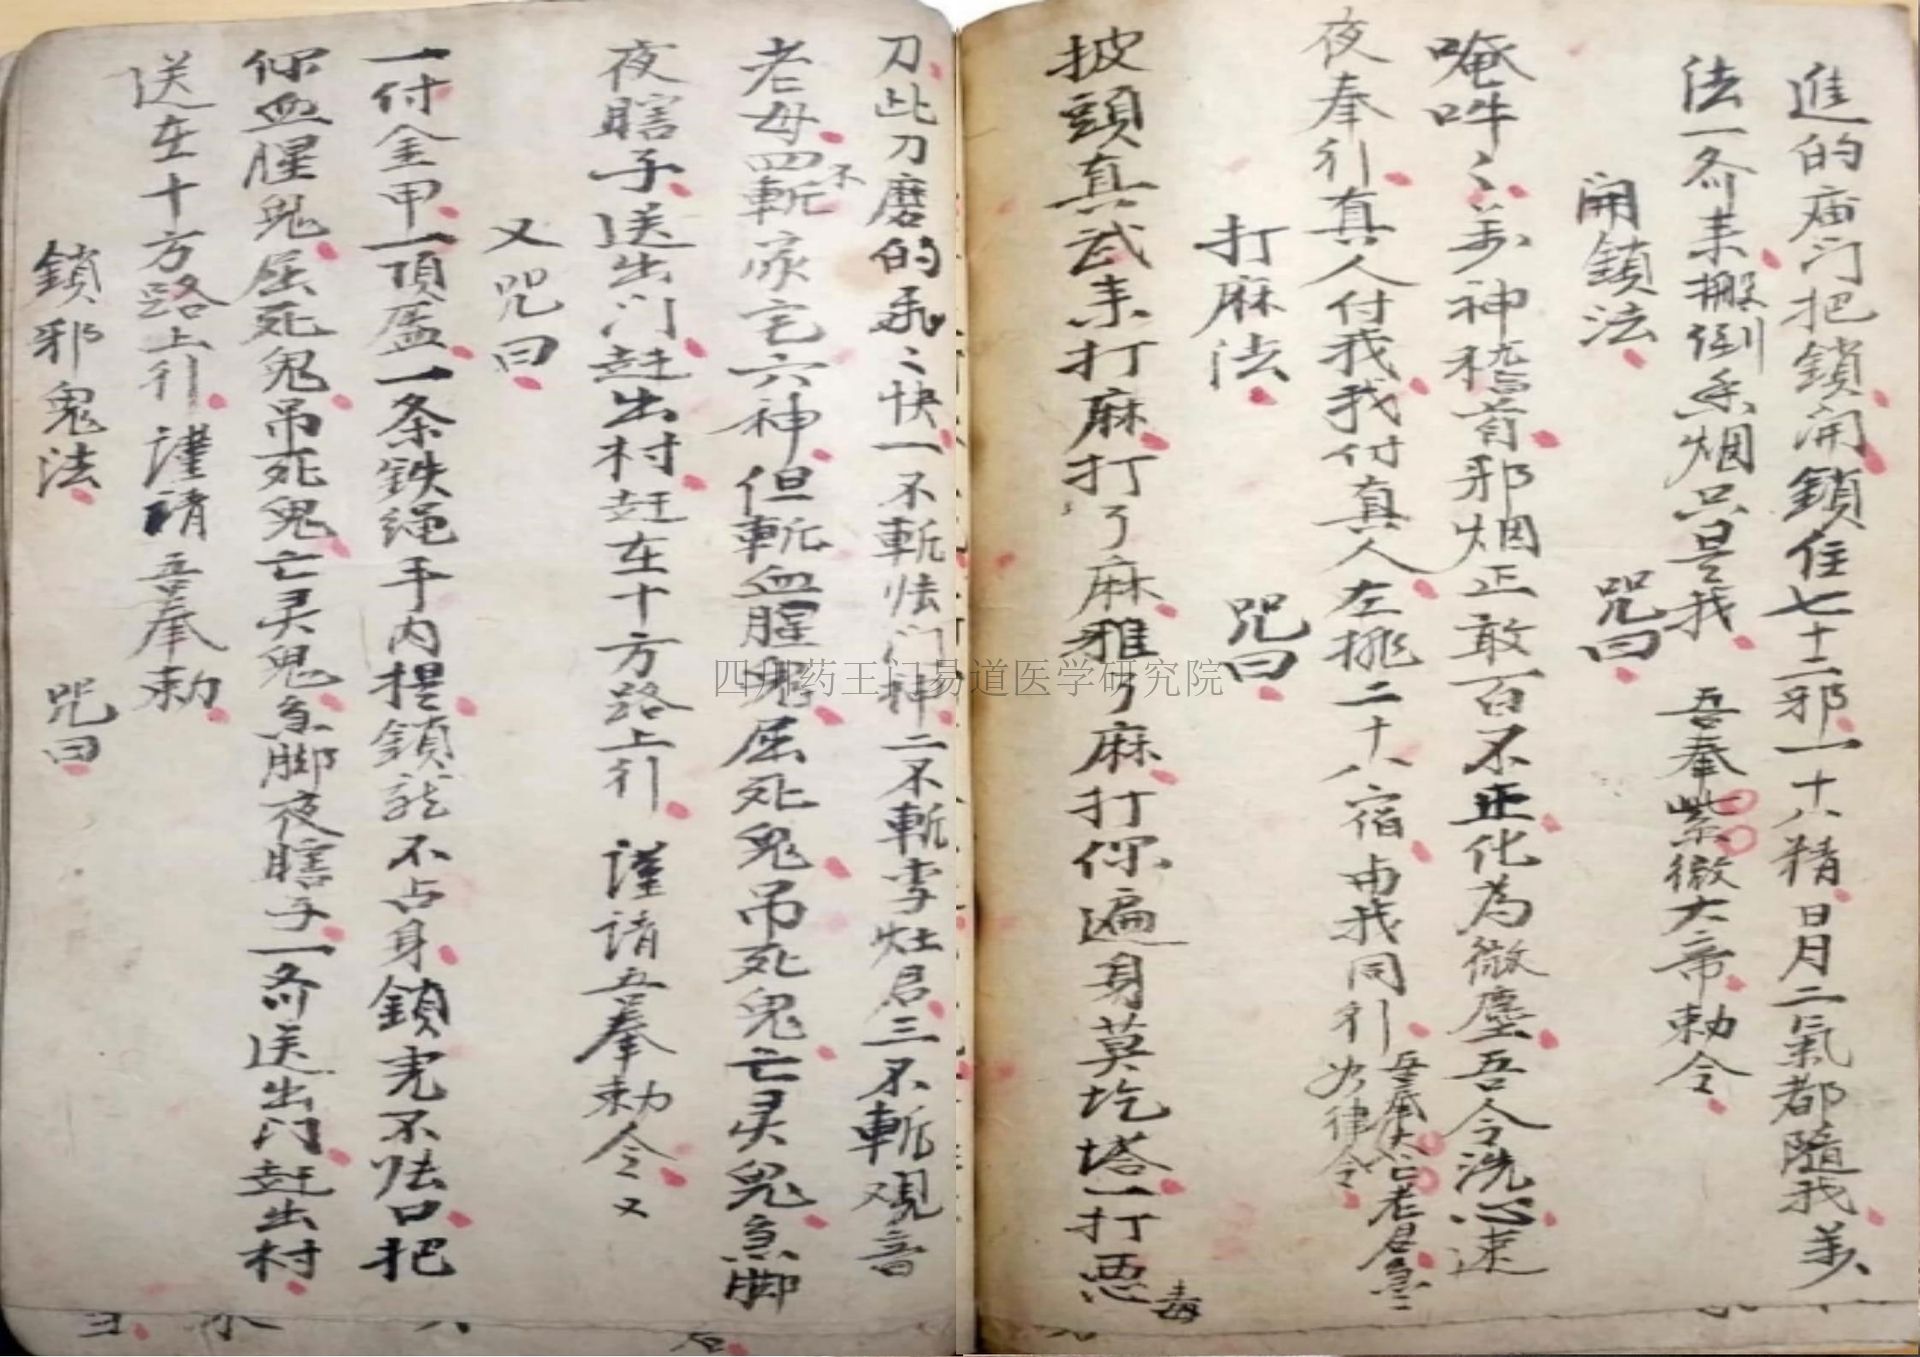 進的庙门把鎖開鎖住七十二邪一十八精日月二氣都隨我差
法一斎来搬倒香烟只是我 吾奉紫微大帝勅令
開鎖法 咒曰
唵吽吽差神稽首邪烟正敢百不正化為微塵吾令洗心速
夜奉行真人付我我付真人左挑二十八宿由我同行吾奉太上老君急急如律令
打麻法 咒曰
披頭真武来打麻打了麻雅了麻打你遍身莫圪塔一打惡毒
刀此刀磨的飛飛快一不斬怯门神二不斬李灶君三不斬观音
老母四不斬家宅六神但斬血腥鬼屈死鬼吊死鬼亡灵鬼急脚
夜瞎子送出门赶出村赶在十方路上行 謹請吾奉勅令 又
又咒曰
一付金甲一頂盔一条铁绳手内提鎖龍不占身鎖鬼不怯口把
你血腥鬼屈死鬼吊死鬼亡灵鬼急脚夜瞎子一斎送出门赶出村
送在十方路上行 謹請吾奉勅
鎖邪鬼法 咒曰
四川药王门易道医学研究院